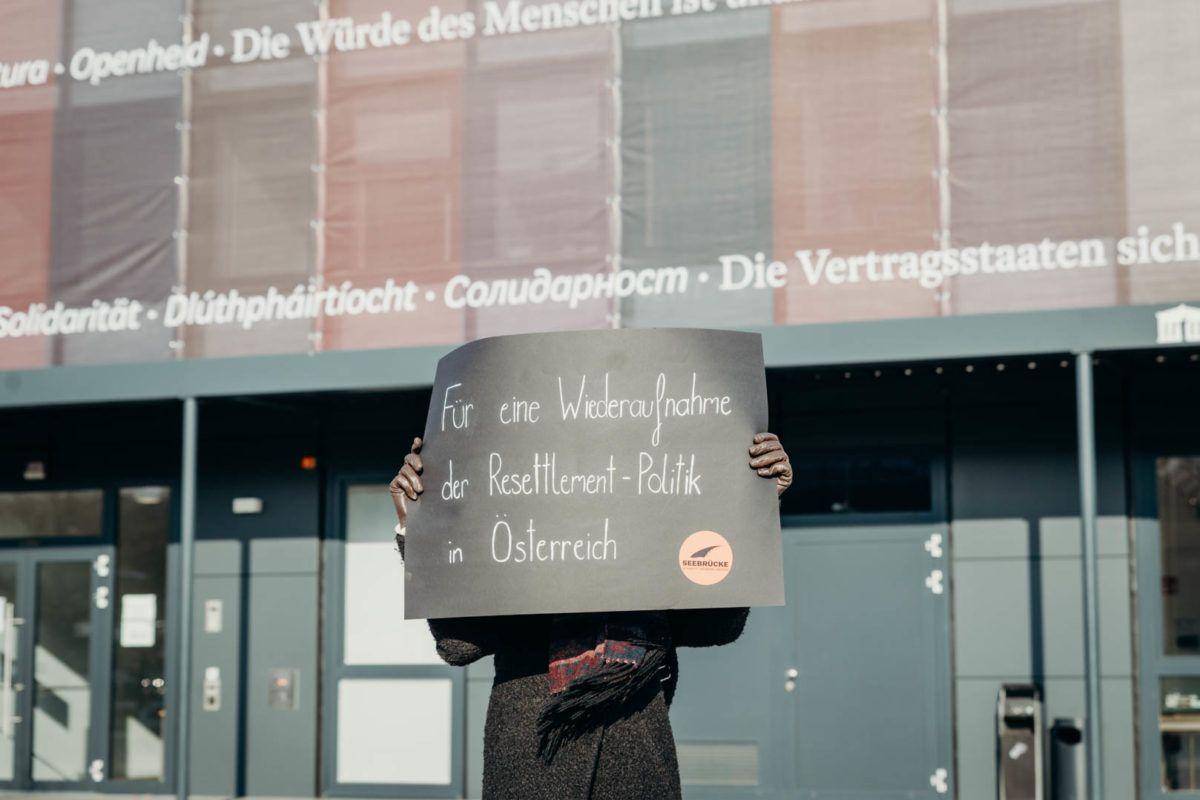 tura · Openheid · Die Würde des Menschen ist
Solidarität · Dlúthpháirtíocht · Солидарност · Die Vertragsstaaten sich
Für eine Wiederaufnahme
der Resettlement-Politik
in Österreich
SEEBRÜCKE